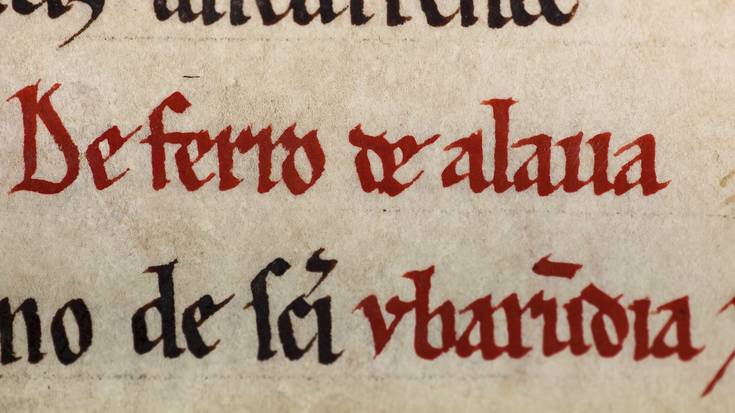 De ferro de alaua
no de sc̄i vbarūdia